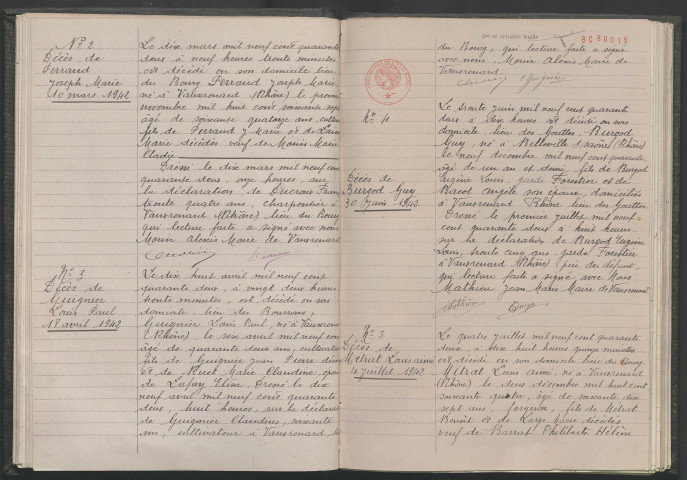 N° 2
Décès de
Ferraud
Joseph Marie
10 mars 1942
Le dix mars mil neuf cent quarante
deux à neuf heures trente minutes
est décédé en son domicile lieu
du Bourg Ferraud Joseph Marie,
né à Vauxrenard (Rhône) le premier
novembre mil huit cent soixante sept
âgé de soixante quatorze ans, cultiv
fils de Ferraud J Marie et de
Marie décédés veuf de Monin Marie
Claudie
Dressé le dix mars mil neuf cent
quarante deux, onze heures, sur
la déclaration de Ducroux Fran
trente quatre ans, charpentier à
Vauxrenard (Rhône) lieu du Bourg
qui lecture faite a signé avec nous
Monin Alexis Maire de Vauxrenard
N° 3
Décès de
Guignier
Louis Paul
18 avril 1942
Le dix huit avril mil neuf cent
quarante deux, à vingt deux heures
trente minutes, est décédé en son
domicile lieu des Bourrons,
Guignier Louis Paul, né à Vauxrenard
(Rhône) le six avril mil neuf cent
âgé de quarante deux ans, cultivateur
fils de Guignier Jean Pierre décédé
et de Ruet Marie Claudine, époux
de Lafay Elisa. Dressé le dix
neuf avril mil neuf cent quarante
deux, huit heures, sur la déclarat
de Guignier Claudius, soixante
ans, cultivateur à Vauxrenard, lieu
2me et dernière feuille
BC 80019
du Bourg, qui lecture faite a signé
avec nous Monin Alexis Maire de
Vauxrenard
N° 4
Décès de
Burgod Guy
30 Juin 1942
Le trente juin mil neuf cent quarante
deux à dix heures est décédé en son
domicile lieu des Gouttes, Burgod
Guy, né à Belleville s/Saône (Rhône)
le neuf décembre mil neuf cent quarante,
âgé de un an et demi, fils de Burgod
Eugène Louis, garde Forestier et
de Bacot Angèle son épouse, domiciliés
à Vauxrenard Rhône lieu des Gouttes.
Dressé le premier juillet mil neuf
cent quarante deux à huit heures
sur la déclaration de Burgod Eugène
Louis, trente cinq ans, garde Forestier
à Vauxrenard (Rhône) père du défunt,
qui lecture faite a signé avec Nous
Mathieu Jean Marie Maire de Vauxrenard
Mathieu
Burgod
N° 5
Décès de
Métrat Louis Aimé
4 juillet 1942
Le quatre juillet mil neuf cent quarante
deux, à dix huit heures quinze minutes
est décédé en son domicile lieu du Bourg
Métrat Louis Aimé, né à Vauxrenard
(Rhône) le deux décembre mil huit cent
soixante quatre, âgé de soixante dix
sept ans, forgeron, fils de Métrat
Benoît et de Large Marie décédés
veuf de Barrat Philiberte Hélène